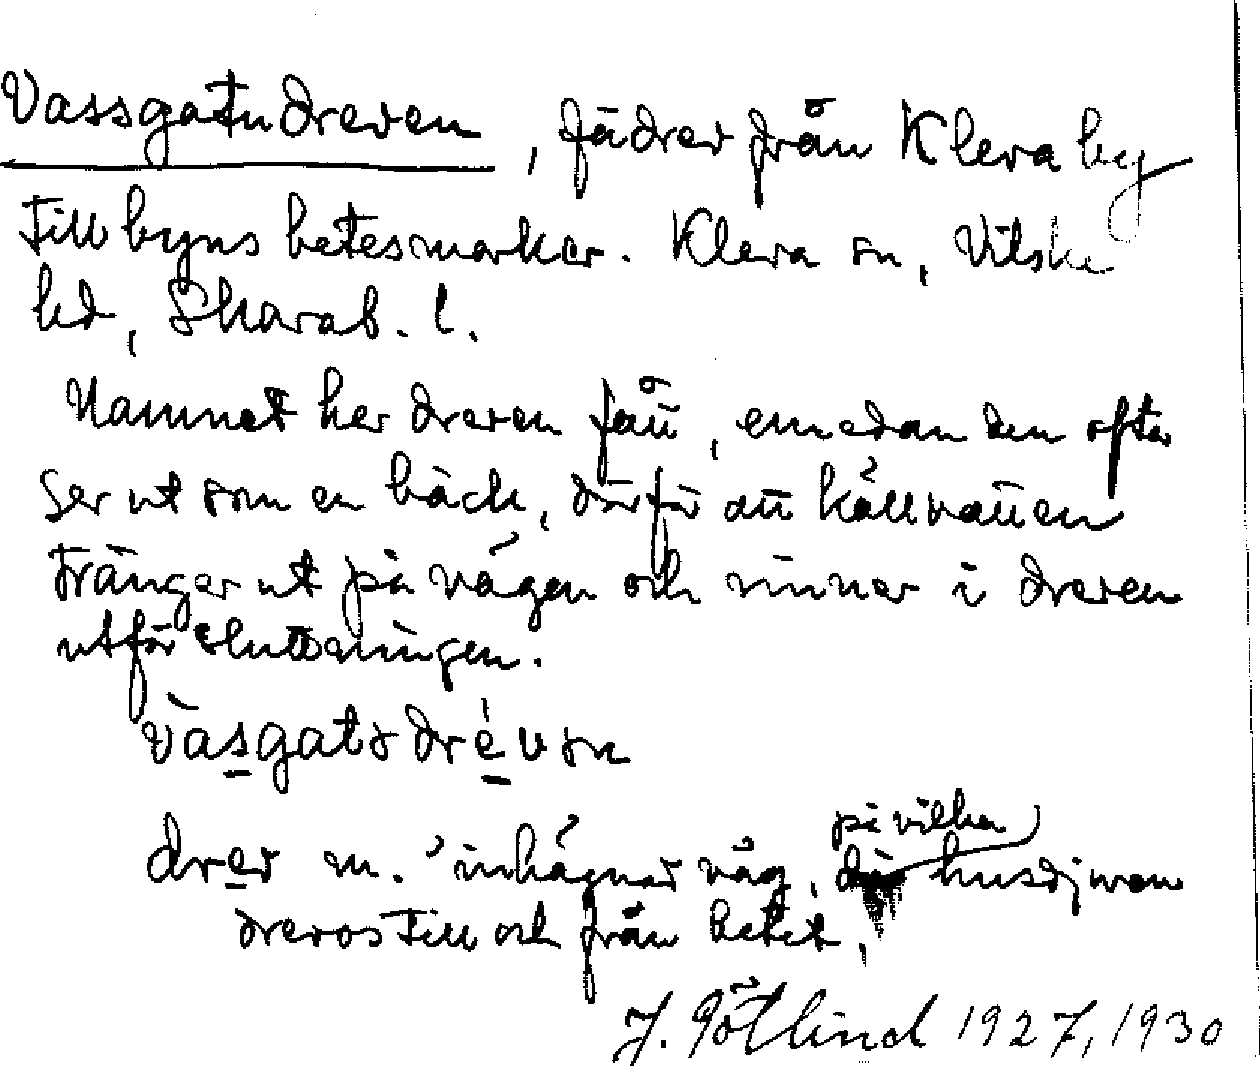 Vassgatudreven, fädrev från Kleva by
till byns betesmarker. Kleva sn, Vilske
hd, Skarab. l.
Namnet her dreven fått, emedan den ofta
ser ut som en bäck, därför att källvatten
tränger ut på vägen och rinner i dreven
utför sluttningen.
vàsgatɷdrévən
drev m. 'inhägnad väg, på vilken husdjuren
drevos till och från betet,
J. Götlind 1927, 1930